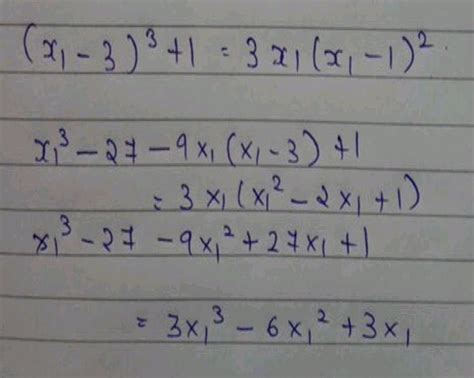 (x₁ - 3)³ + 1 = 3x₁(x₁ - 1)²
x₁³ - 27 - 9x₁(x₁ - 3) + 1
= 3x₁(x₁² - 2x₁ + 1)
x₁³ - 27 - 9x₁² + 27x₁ + 1
= 3x₁³ - 6x₁² + 3x₁